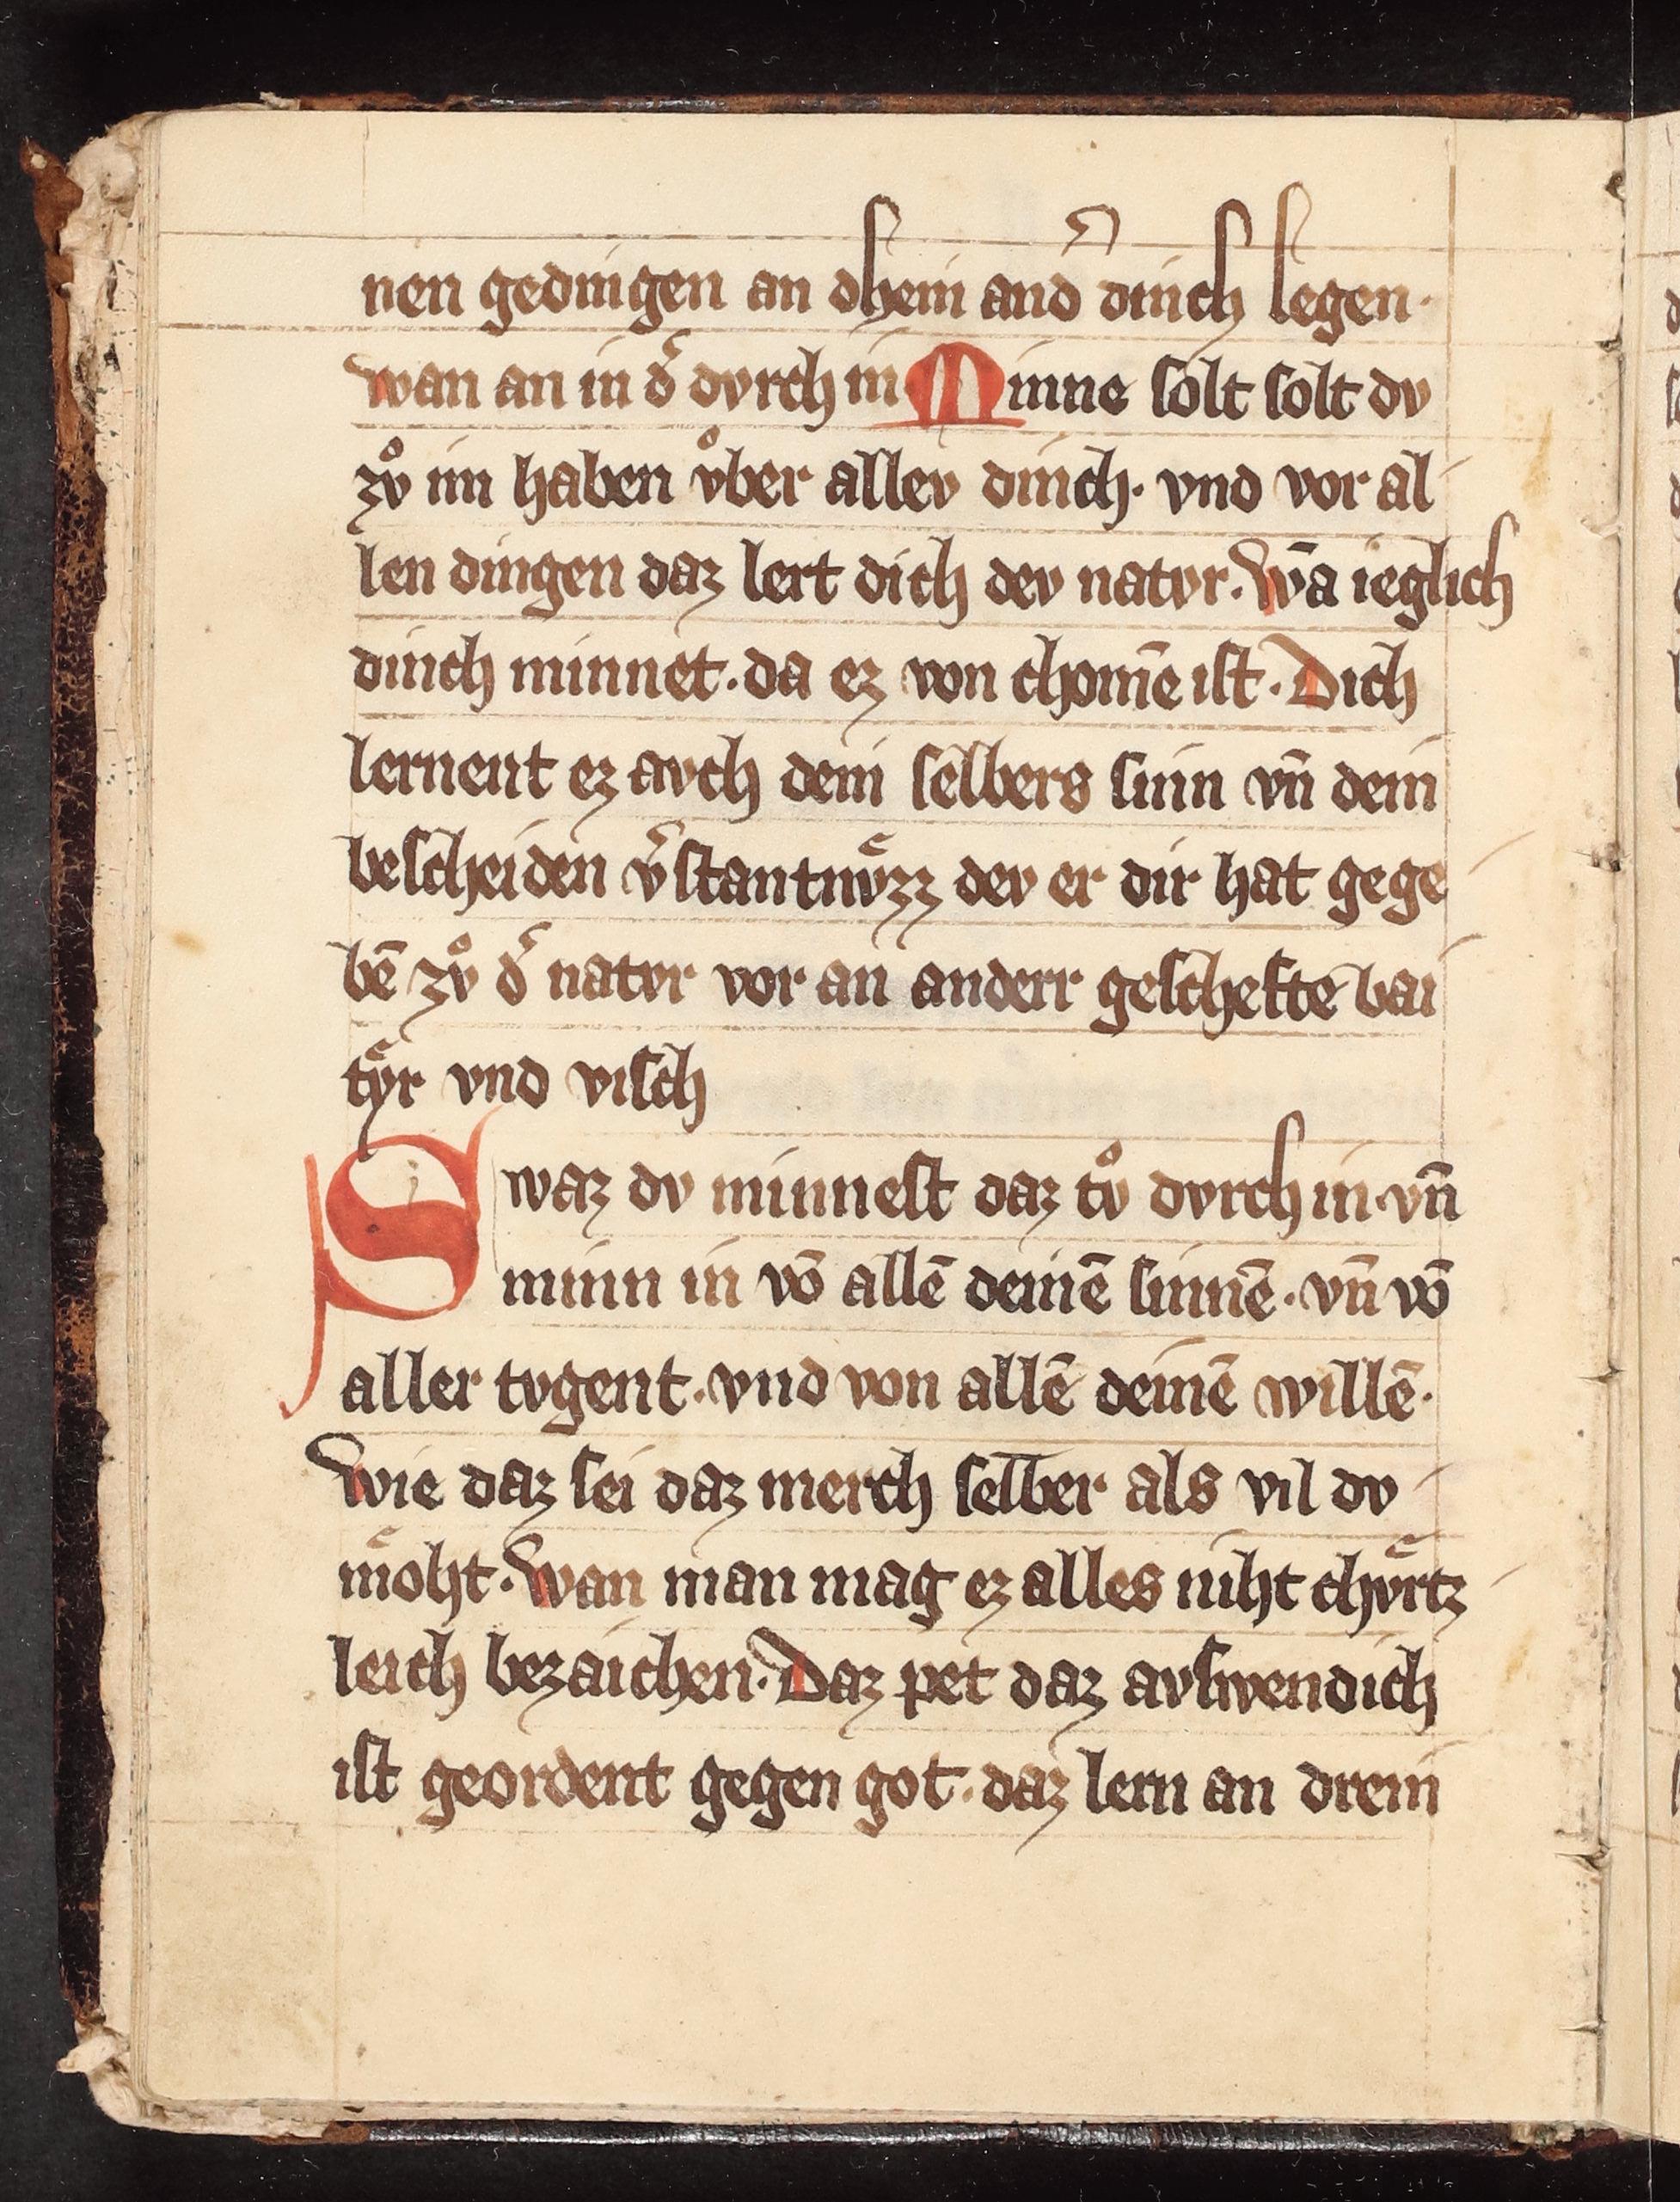 nen gedingen an dhein and͛ dinch legen·
wan an in d͛ dvrch in Minne solt solt dv
zvͦ im haben vͦber allev dinch· vnd vor al
len dingen daz lert dich dev natvr. Wā ieglich
dinch minnet· da ez von chom̄e ist· Dich
lernent ez avch dein selbers sinn vn̄ dein
bescheiden v͛stantnvͤzz dev er dir hat gege
bē zvͦ d͛ natvr vor an anderr gescheftē bai
tyͤr vnd visch
Swaz dv minnest daz tvͦ dvrch in· vn̄
minn in vō allē deinē sinnē· vn̄ vō
aller tvgent· vnd von allē deinē willē·
Wie daz sei daz merch selber als vil dv
moͤht· Wan man mag ez alles niht chvͤrtz
leich bezaichen· Daz pet daz avswendich
ist geordent gegen got· daz lern an drein